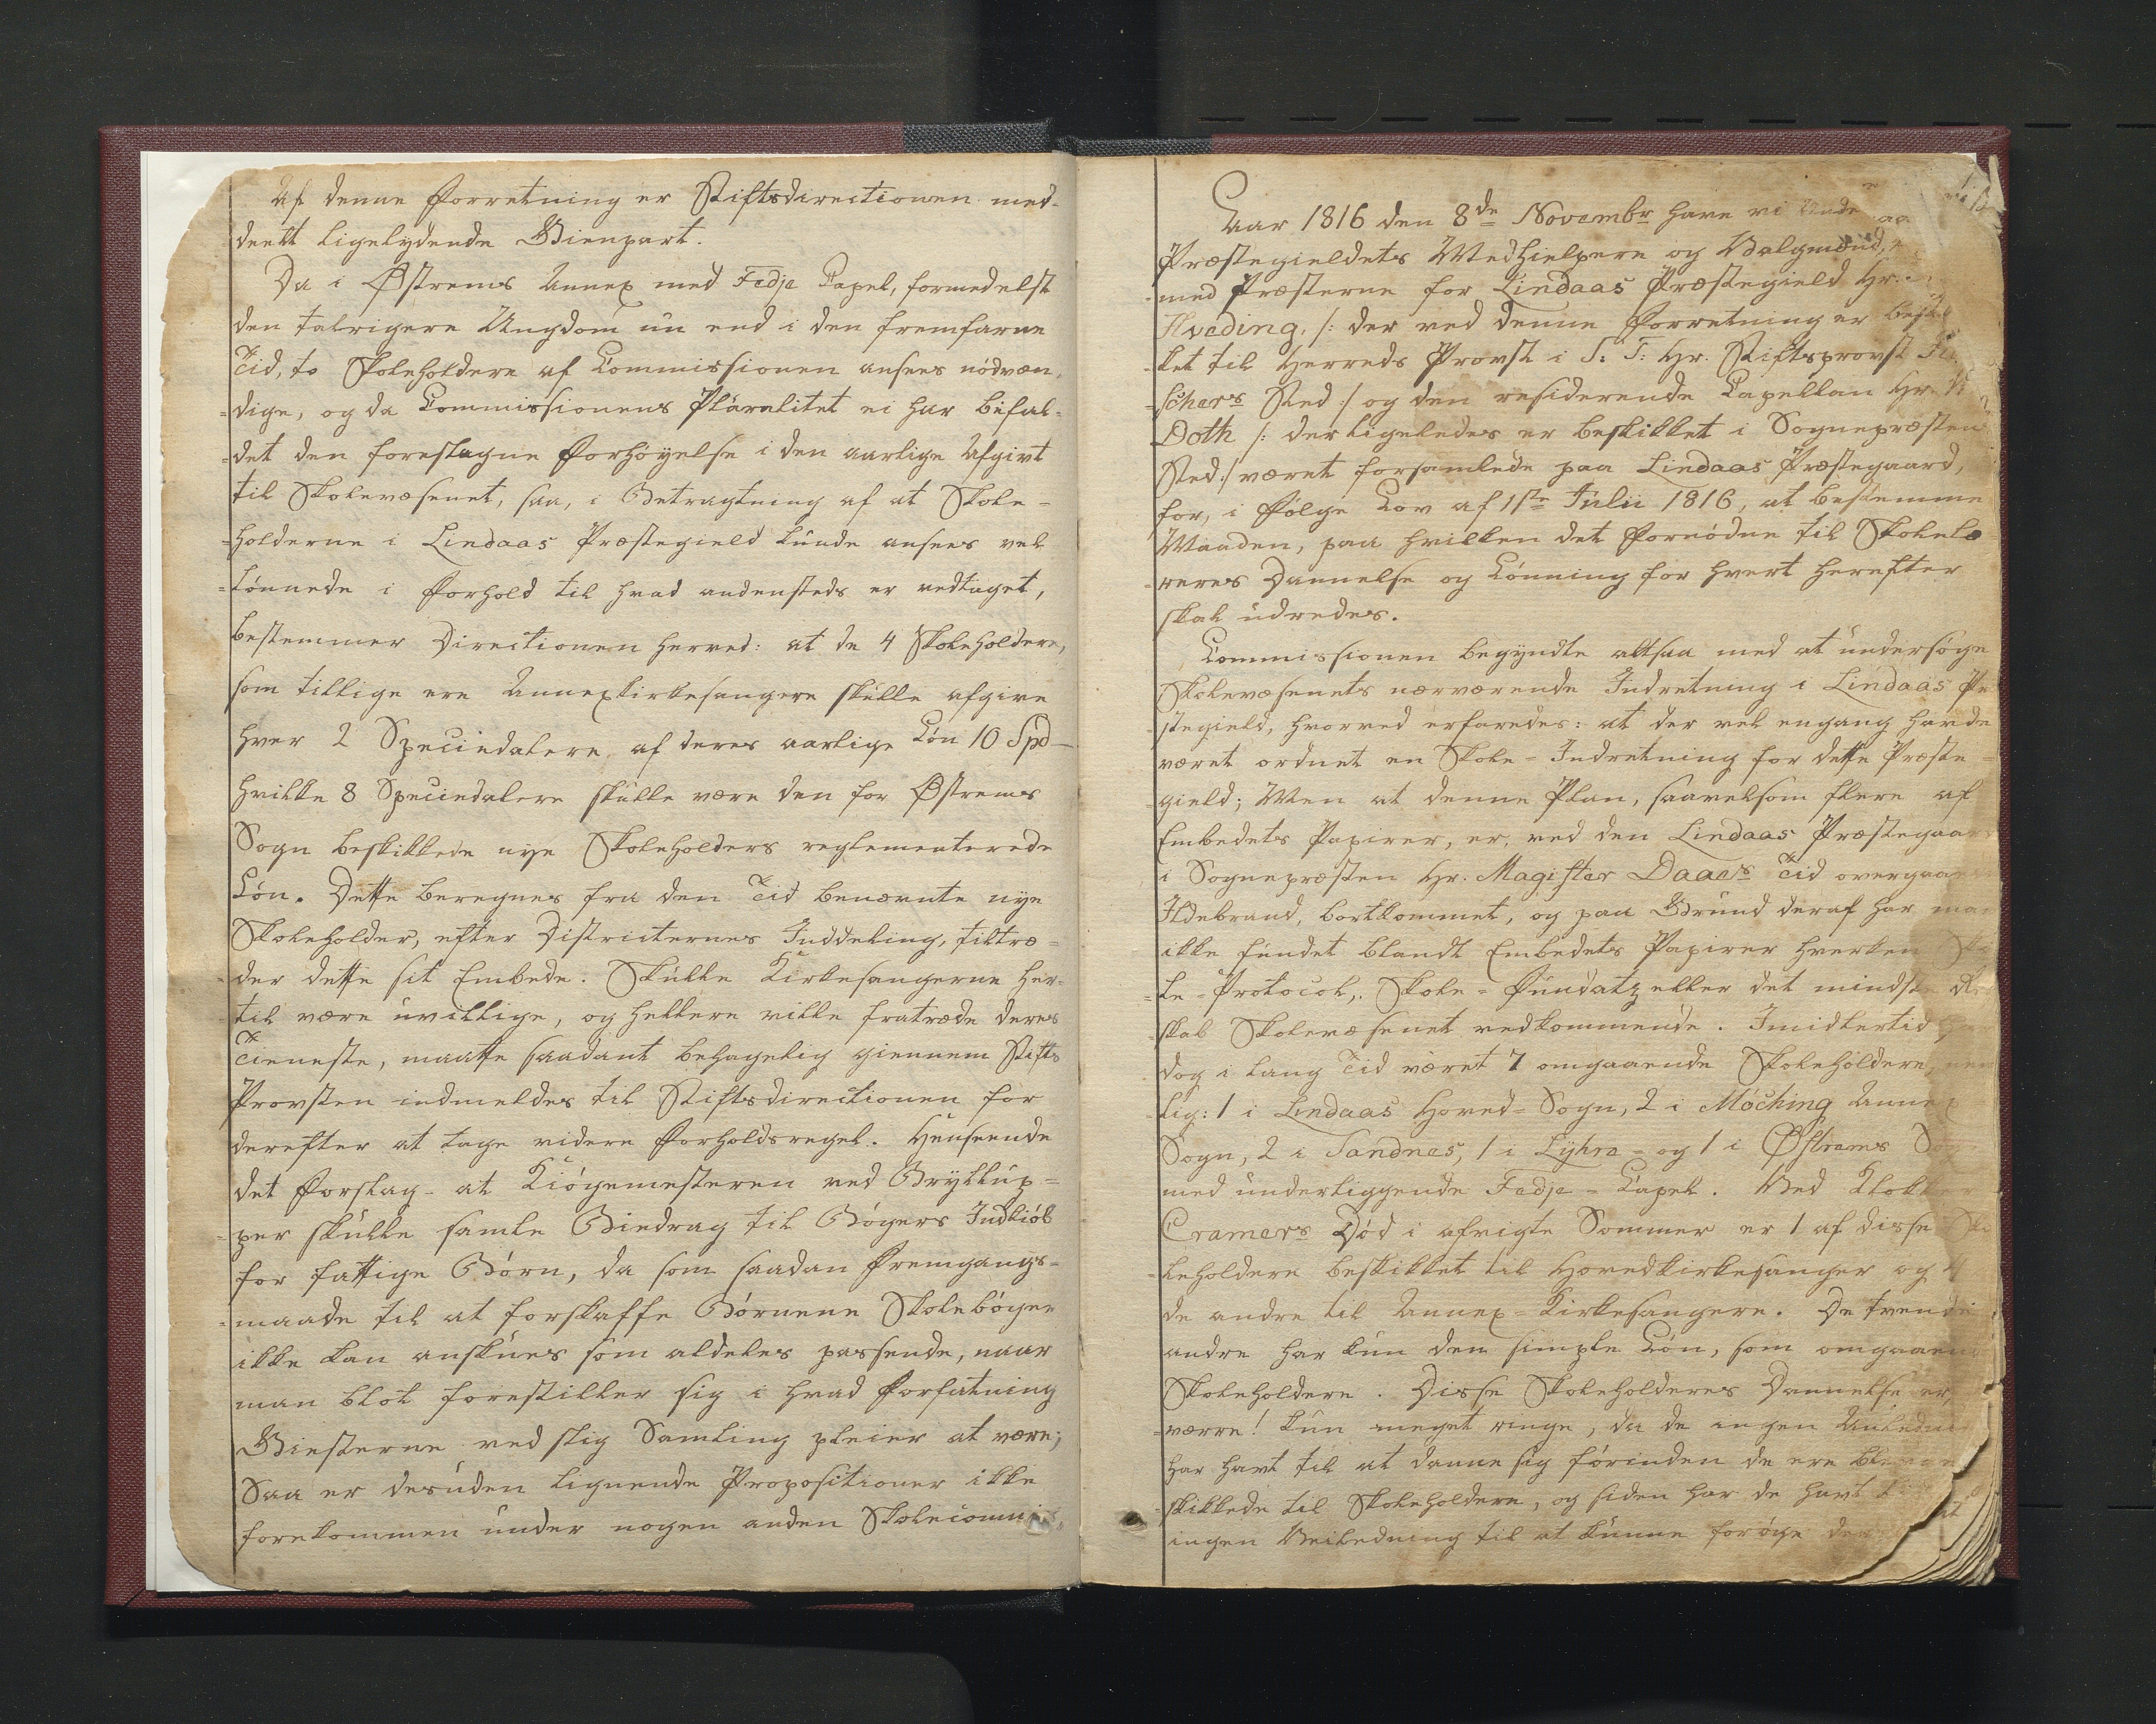 Af denne Forretning er Stiftsdirectionen med-
deelt ligelydende Gienpart.
Da i Østrems Annex med Fedje Capel, formedelst
den talrigere Ungdom nu end i den fremfarne
Tid, to Skoleholdere af Commissionen ansees nödven-
=dige, og da Commissionens Pluralitet ei har bifal-
=det den foreslagne Forhöyelse i den aarlige Afgivt
til Skolevæsenet, saa, i Betragtning af at Skole-
=holderne i Lindaas Præstegield kunde ansees vel
=lönnede i Forhold til hvad andensteds er vedtaget,
bestemmer Directionen herved: at de 4 Skoleholdere,
som tillige ere Annexkirkesangere skulle afgive
hver 2 Speciedalere af deres aarlige Lön 10 Spd
hvilke 8 Speciedalere skulle være den for Østrems
Sogn beskikkede nye Skoleholders reglementerede
Lön. Dette beregnes fra den Tid benævnte nye
Skoleholder, efter Districternes Inddeling, tiltræ=
der dette sit Embede. Skulle Kirkesangerne her-
=til være uvillige, og hellere ville fratræde deres
Tieneste, maatte saadant behagelig giennem Stifts
Provsten indmeldes til Stiftsdirectionen for
derefter at tage videre Forholdsregel. Henseende
det Forslag at Kiögemesteren ved Bryllup=
=per skulle samle Biedrag til Bögers Indkiöb
for fattige Börn, da som saadan Fremgangs=
=maade til at forskaffe Börnene Skoleböger
ikke kan ansees som aldeles passende, naar
man blot forestiller sig i hvad Forfatning
Giesterne ved slig Samling pleier at være;
Saa er desuden lignende Propositioner ikke
forekommen under nogen anden Skolecommis
Aar 1816 den 8de Novembr have vi
Præstegieldets Medhielpere og Valgmænd,
med Præsterne for Lindaas Præstegield Hr.
Hveding, /: der ved denne Forretning er
ket til Herreds Provst i S. T: Hr. Stiftsprovst
schers Sted :/ og den residerende Capellan Hr.
Doth /: der ligeledes er beskikket i Sognepræstens
Sted :/ været forsamlede paa Lindaas Præstegaard,
for, i Fölge Lov af 1ste Julii 1816, at bestemme
Maaden, paa hvilken det Fornödne til Skolelæ
=reres Dannelse og Lönning for hvert herefter
skal udredes.
Commissionen begyndte altsaa med at undersöge
Skolevæsenets nærværende Indretning i Lindaas Præ
stegield, hvorved erfaredes: at der vel engang havde
været ordnet en Skole=Indretning for dette Præste=
gield; Men at denne Plan, saavelsom flere af
Embedets Papirer, er, ved den Lindaas Præstegaard
i Sognepræsten Hr. Magister Daaes Tid
Ildebrand, bortkommet, og paa Grund deraf har man
ikke fundet blandt Embedets Papirer hverken Sko
=le=Protocol, Skole=Fundatz eller det mindste
skab Skolevæsenet vedkommende. Imidlertid
dog i lang Tid været 7 omgaaende Skoleholdere, nem
lig: 1 i Lindaas Hoved=Sogn, 2 i Möching Annex
Sogn, 2 i Sandnes, 1 i Lyhre og 1 i Østrems
med underliggende Fedje=Capel. Ved Klokker
Cramers Död i afvigte Sommer er 1 af disse Sko
leholdere beskikket til Hovedkirkesanger og 4
de andre til Annex=Kirkesangere. De tvende
andre har kun den simple Lön, som omgaaende
Skoleholdere. Disse Skoleholderes Dannelse er,
=værre! kun meget ringe, da de ingen Anledning
har havt til at danne sig förinden de ere
skikkede til Skoleholdere, og siden har de havt
ingen Veiledning til at kunne foröge